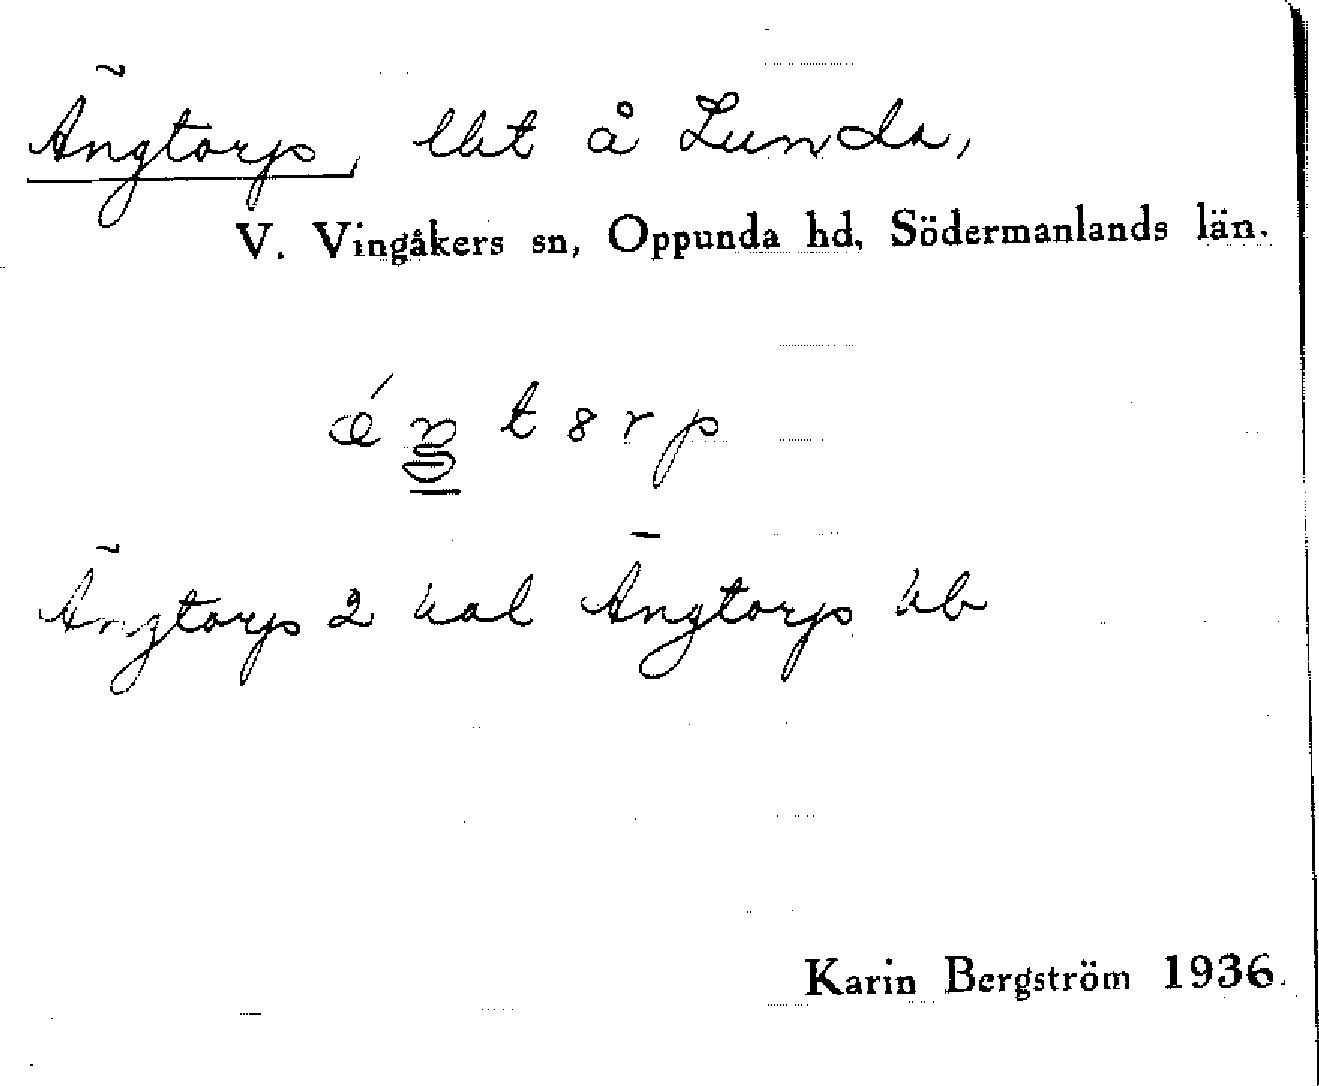 Ängtorp, lht å Lunda,
V. Vingåkers sn, Oppunda hd, Södermanlands län.
t 8 r p
Ängtorp 2 kal Ängtorp kb
Karin Bergström 1936.